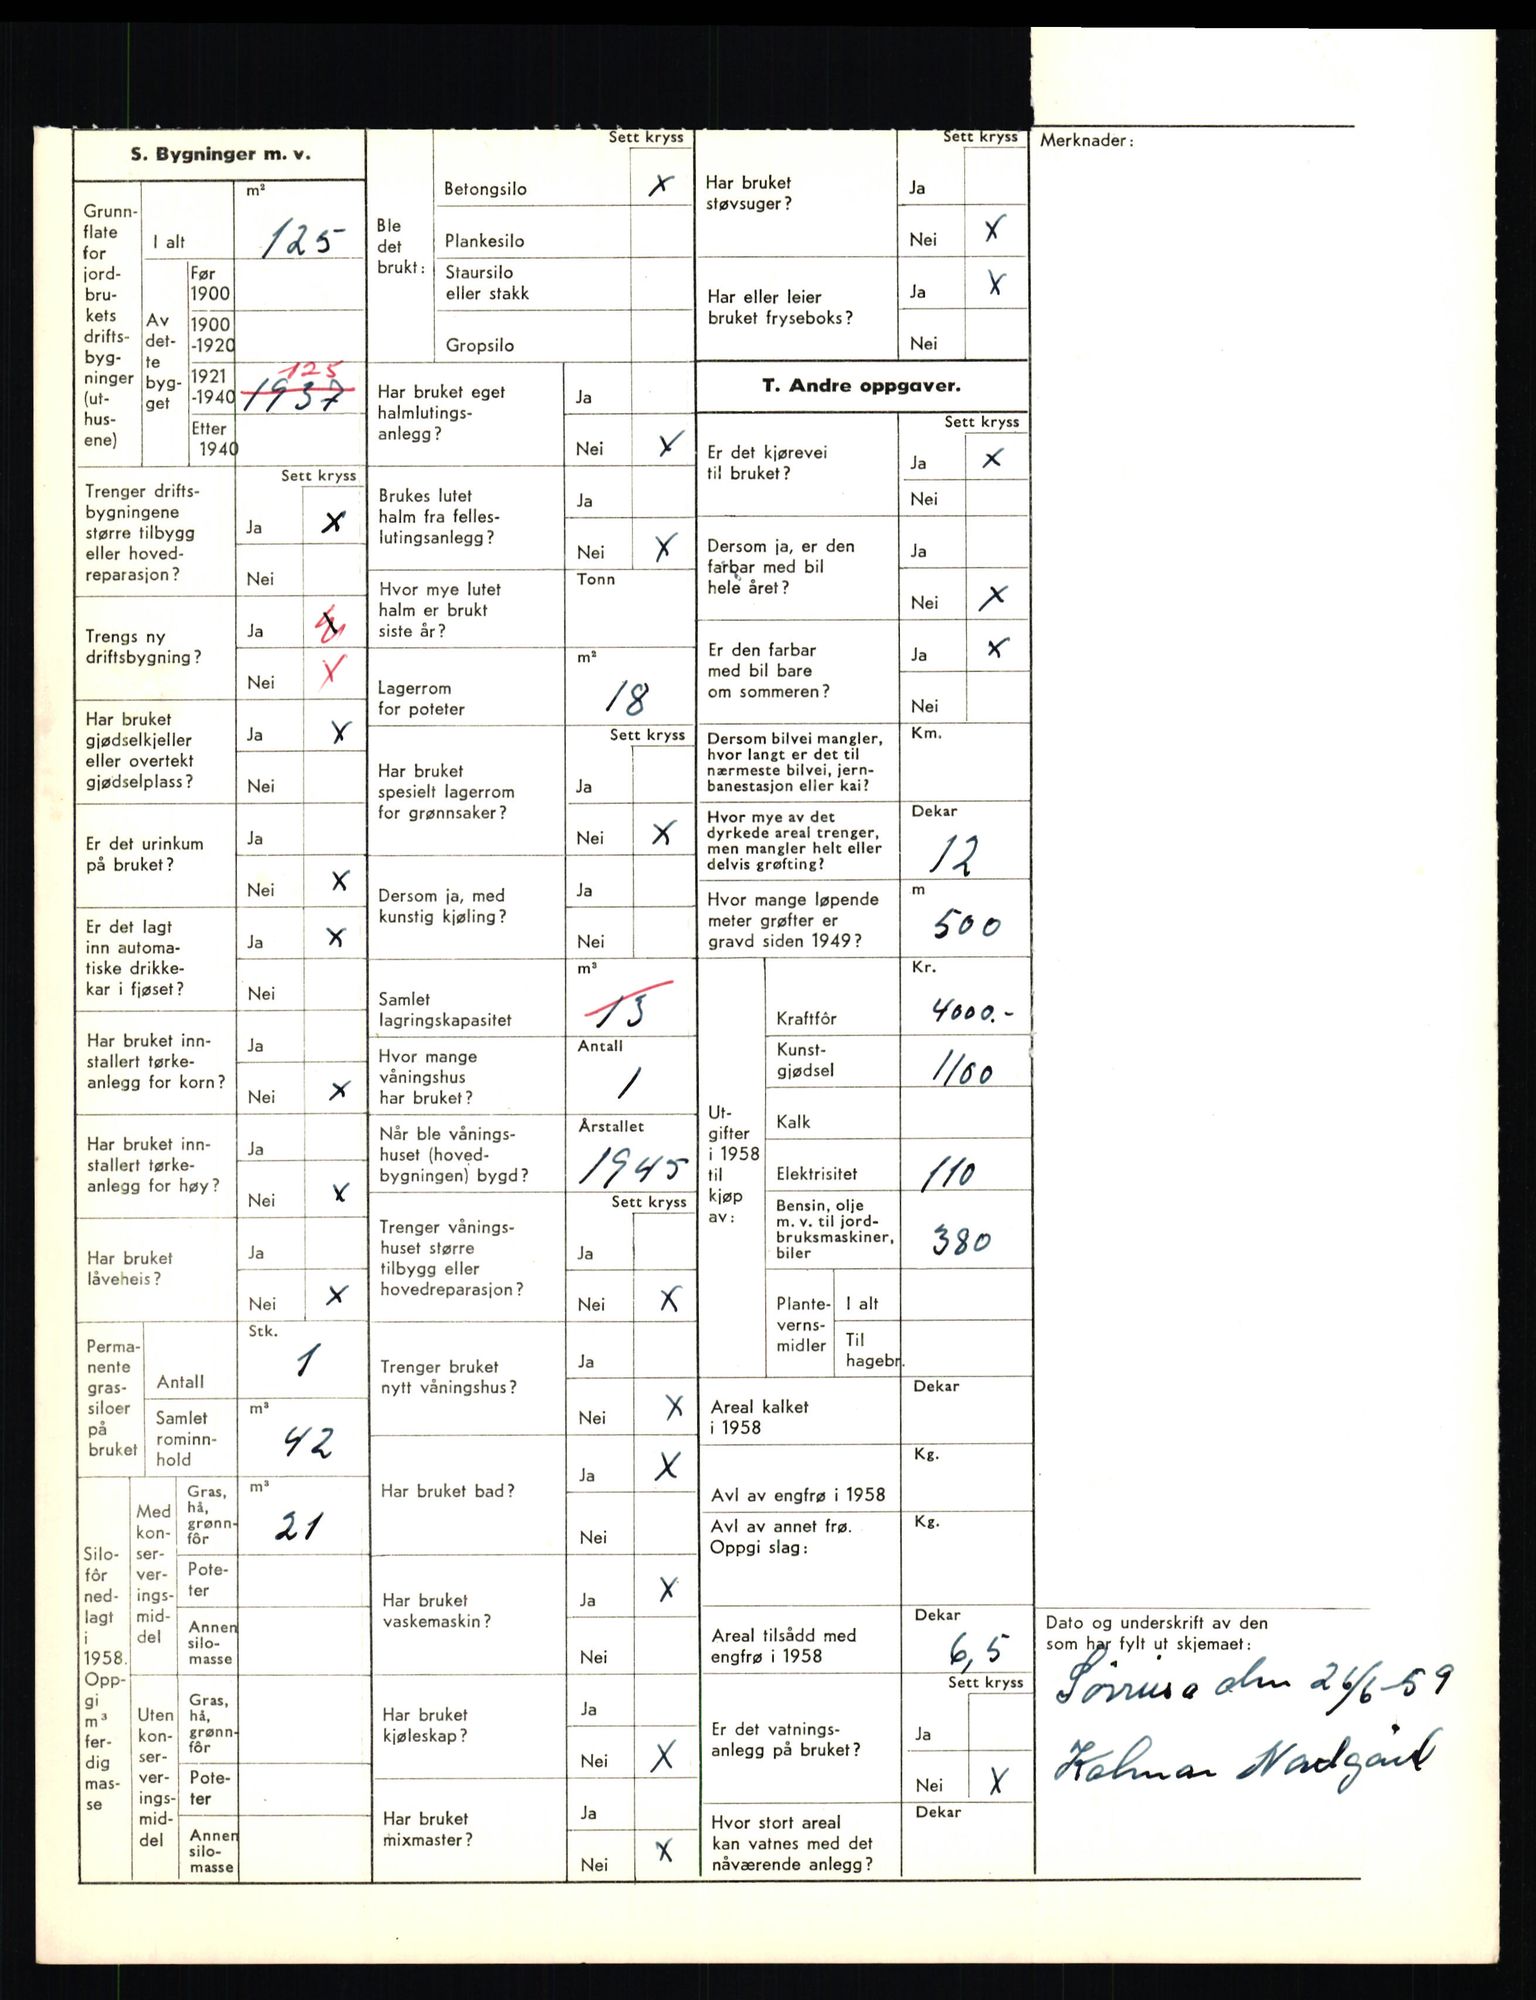 S. Bygninger m. v.
Grunn-
flate
for
jord-
bru-
kets
drifts-
byg-
ninger
(ut-
hus-
ene)
m²
I alt
125
Av
det-
te
byg-
get
Før
1900
1900
-1920
1921
-1940
125
1937
Etter
1940
Sett kryss
Trenger drifts-
bygningene
større tilbygg
eller hoved-
reparasjon?
Ja X
Nei
Trengs ny
driftsbygning?
Ja X
Nei X
Har bruket
gjødselkjeller
eller overtekt
gjødselplass?
Ja X
Nei
Er det urinkum
på bruket?
Ja
Nei X
Er det lagt
inn automa-
tiske drikke-
kar i fjøset?
Ja X
Nei
Har bruket inn-
stallert tørke-
anlegg for korn?
Ja
Nei X
Har bruket inn-
stallert tørke-
anlegg for høy?
Ja
Nei X
Har bruket
låveheis?
Ja
Nei X
Perma-
nente
gras-
siloer
på
bruket
Stk.
Antall
1
Samlet
rominn-
hold
m³
42
Silo-
fôr
ned-
lagt
i
1958.
Opp-
gi
m³
fer-
dig
mas-
se
Med
kon-
ser-
ver-
ings-
mid-
del
Gras,
hå,
grønn-
fôr
m³
21
Pote-
ter
Annen
silo-
masse
Uten
kon-
ser-
ver-
ings-
mid-
del
Gras,
hå,
grønn-
fôr
Pote-
ter
Annen
silo-
masse
Ble
det
brukt:
Sett kryss
Betongsilo X
Plankesilo
Staursilo
eller stakk
Gropsilo
Har bruket eget
halmlutings-
anlegg?
Ja
Nei X
Brukes lutet
halm fra felles-
lutingsanlegg?
Ja
Nei X
Hvor mye lutet
halm er brukt
siste år?
Tonn
Lagerrom
for poteter
m²
18
Sett kryss
Har bruket
spesielt lagerrom
for grønnsaker?
Ja
Nei X
Dersom ja, med
kunstig kjøling?
Ja
Nei
Samlet
lagringskapasitet
m³
13
Hvor mange
våningshus
har bruket?
Antall
1
Når ble vånings-
huset (hoved-
bygningen) bygd?
Årstallet
1945
Sett kryss
Trenger vånings-
huset større
tilbygg eller
hovedreparasjon?
Ja
Nei X
Trenger bruket
nytt våningshus?
Ja
Nei X
Har bruket bad?
Ja X
Nei
Har bruket
vaskemaskin?
Ja X
Nei
Har bruket
kjøleskap?
Ja
Nei X
Har bruket
mixmaster?
Ja
Nei X
Sett kryss
Har bruket
støvsuger?
Ja
Nei X
Har eller leier
bruket fryseboks?
Ja X
Nei
T. Andre oppgaver.
Sett kryss
Er det kjørevei
til bruket?
Ja X
Nei
Dersom ja, er den
farbar med bil
hele året?
Ja
Nei X
Er den farbar
med bil bare
om sommeren?
Ja X
Nei
Dersom bilvei mangler,
hvor langt er det til
nærmeste bilvei, jern-
banestasjon eller kai?
Km.
Hvor mye av det
dyrkede areal trenger,
men mangler helt eller
delvis grøfting?
Dekar
12
Hvor mange løpende
meter grøfter er
gravd siden 1949?
m
500
Ut-
gifter
i 1958
til
kjøp
av:
Kr.
Kraftfôr
4000.-
Kunst-
gjødsel
1100
Kalk
Elektrisitet
110
Bensin, olje
m. v. til jord-
bruksmaskiner,
biler
380
Plante-
verns-
midler
I alt
Til
hagebr.
Areal kalket
i 1958
Dekar
Avl av engfrø i 1958
Kg.
Avl av annet frø.
Oppgi slag:
Kg.
Areal tilsådd med
engfrø i 1958
Dekar
6,5
Sett kryss
Er det vatnings-
anlegg på bruket?
Ja
Nei X
Hvor stort areal
kan vatnes med det
nåværende anlegg?
Dekar
Merknader:
Dato og underskrift av den
som har fylt ut skjemaet:
den 26/6-59
Kolman Nordgård